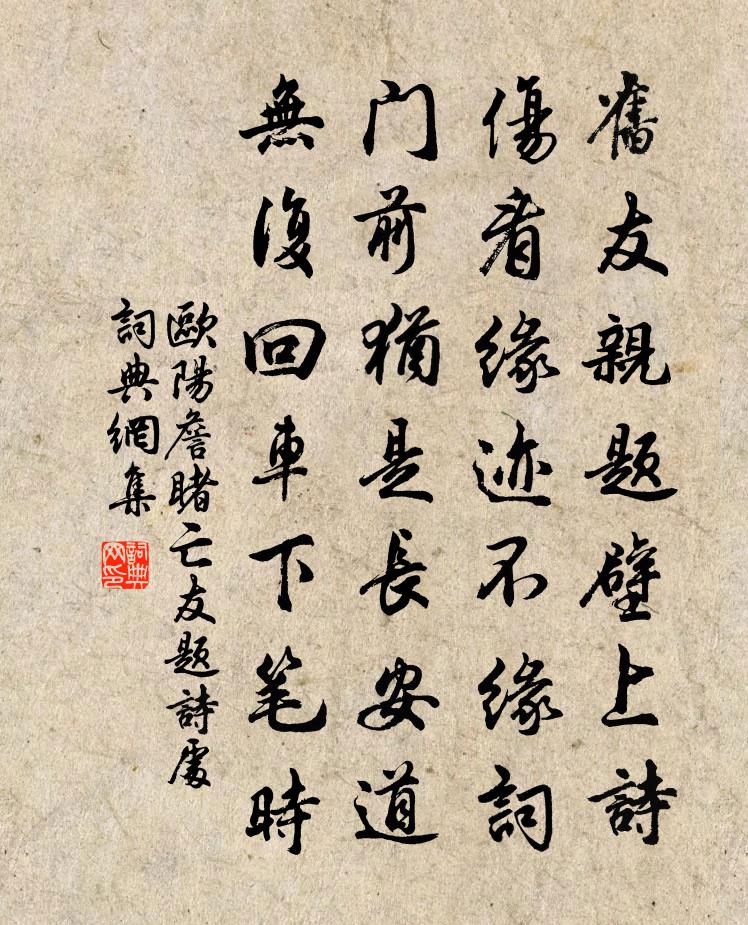 舊友親題壁上詩
傷看緣迹不緣詞
門前猶是長安道
無復回車下笔時
歐陽詹睹亡友題詩處
詞典網集
詞典
网印